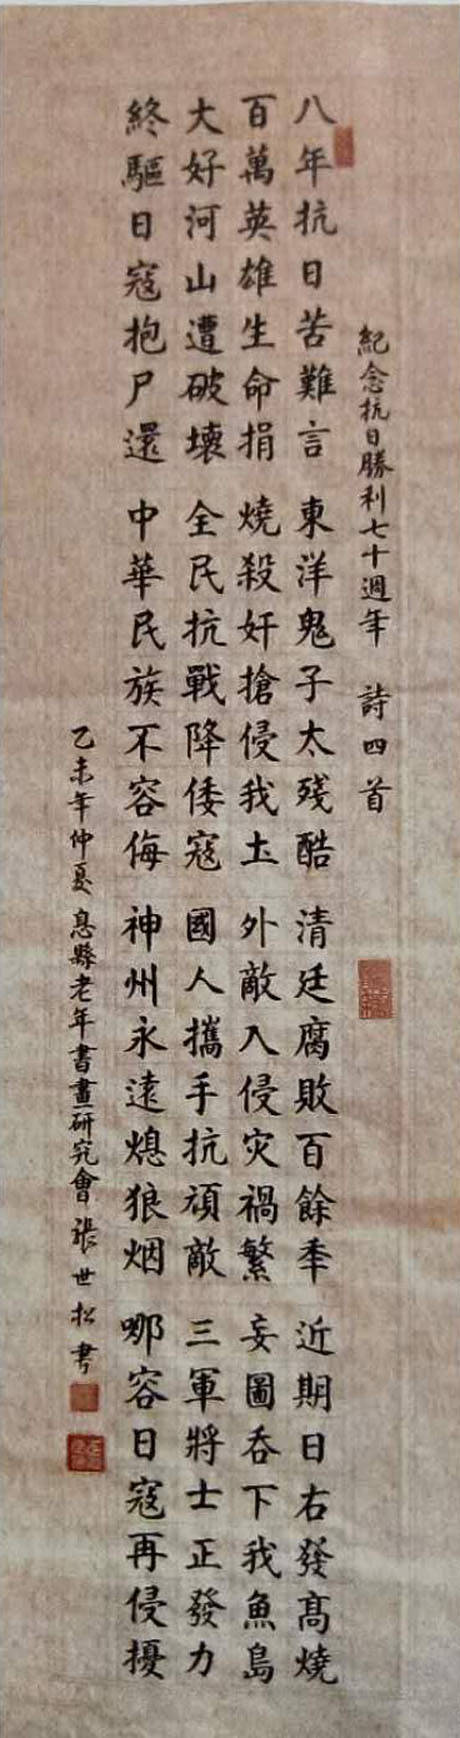 紀念抗日勝利七十週年 詩四首
八年抗日苦難言
百萬英雄生命捐
大好河山遭破壞
終驅日寇抱尸還
東洋鬼子太残酷
燒殺奸搶侵我土
全民抗戰降倭寇
中華民族不容侮
清廷腐敗百餘年
外敵入侵灾禍繁
國人攜手抗頑敵
神州永遠熄狼烟
近期日右發髙燒
妄圖吞下我魚島
三軍將士正發力
哪容日寇再侵擾
乙未年仲夏 息縣老年書畫研究會 張世松書